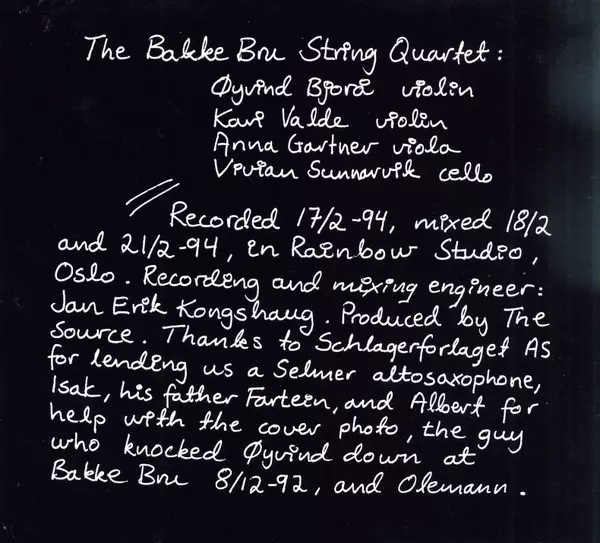 The Bakke Bru String Quartet:
Øyvind Bjorå violin
Kari Valde violin
Anna Gartner viola
Vivian Sunnarvik cello
Recorded 17/2-94, mixed 18/2
and 21/2-94, in Rainbow Studio,
Oslo. Recording and mixing engineer:
Jan Erik Kongshaug. Produced by The
Source. Thanks to Schlagerforlaget AS
for lending us a Selmer altosaxophone,
Isak, his father Fartein, and Albert for
help with the cover photo, the guy
who knocked Øyvind down at
Bakke Bru 8/12-92, and Olemann.